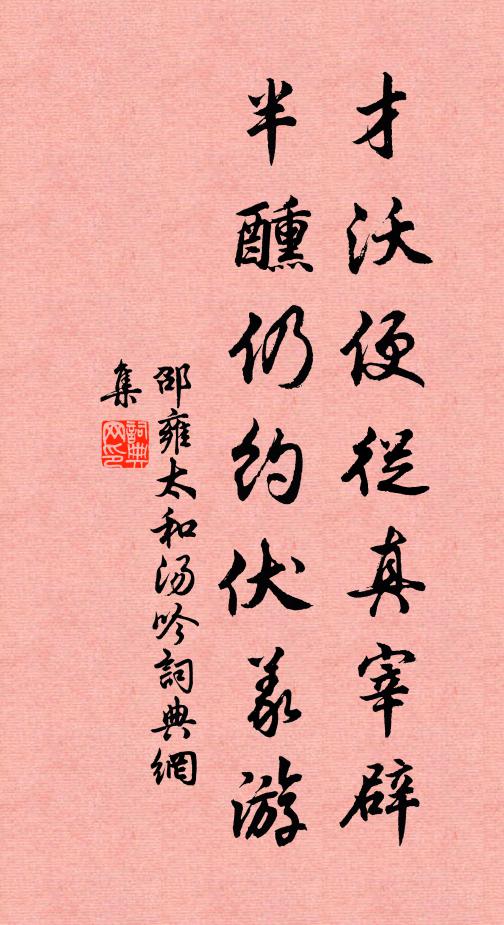 才沃便從真宰辟
半醺仍約伏羲游
邵雍太和湯吟詞典網
集
詞典
网印